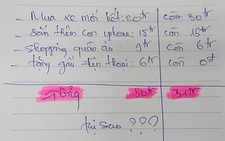 - Mua xe mới hết: 20tr | còn 30tr
- sắm thêm con iphone: 15tr | còn 15tr
- shopping quần áo: 9tr | còn 6tr
- tặng gấu điện thoại: 6tr | còn 0đ
Tổng 50tr 51tr
Tại sao ???